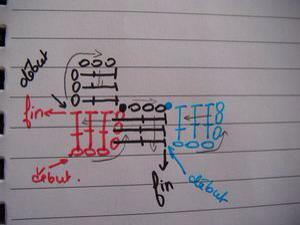 début
fin
début.
fin
début